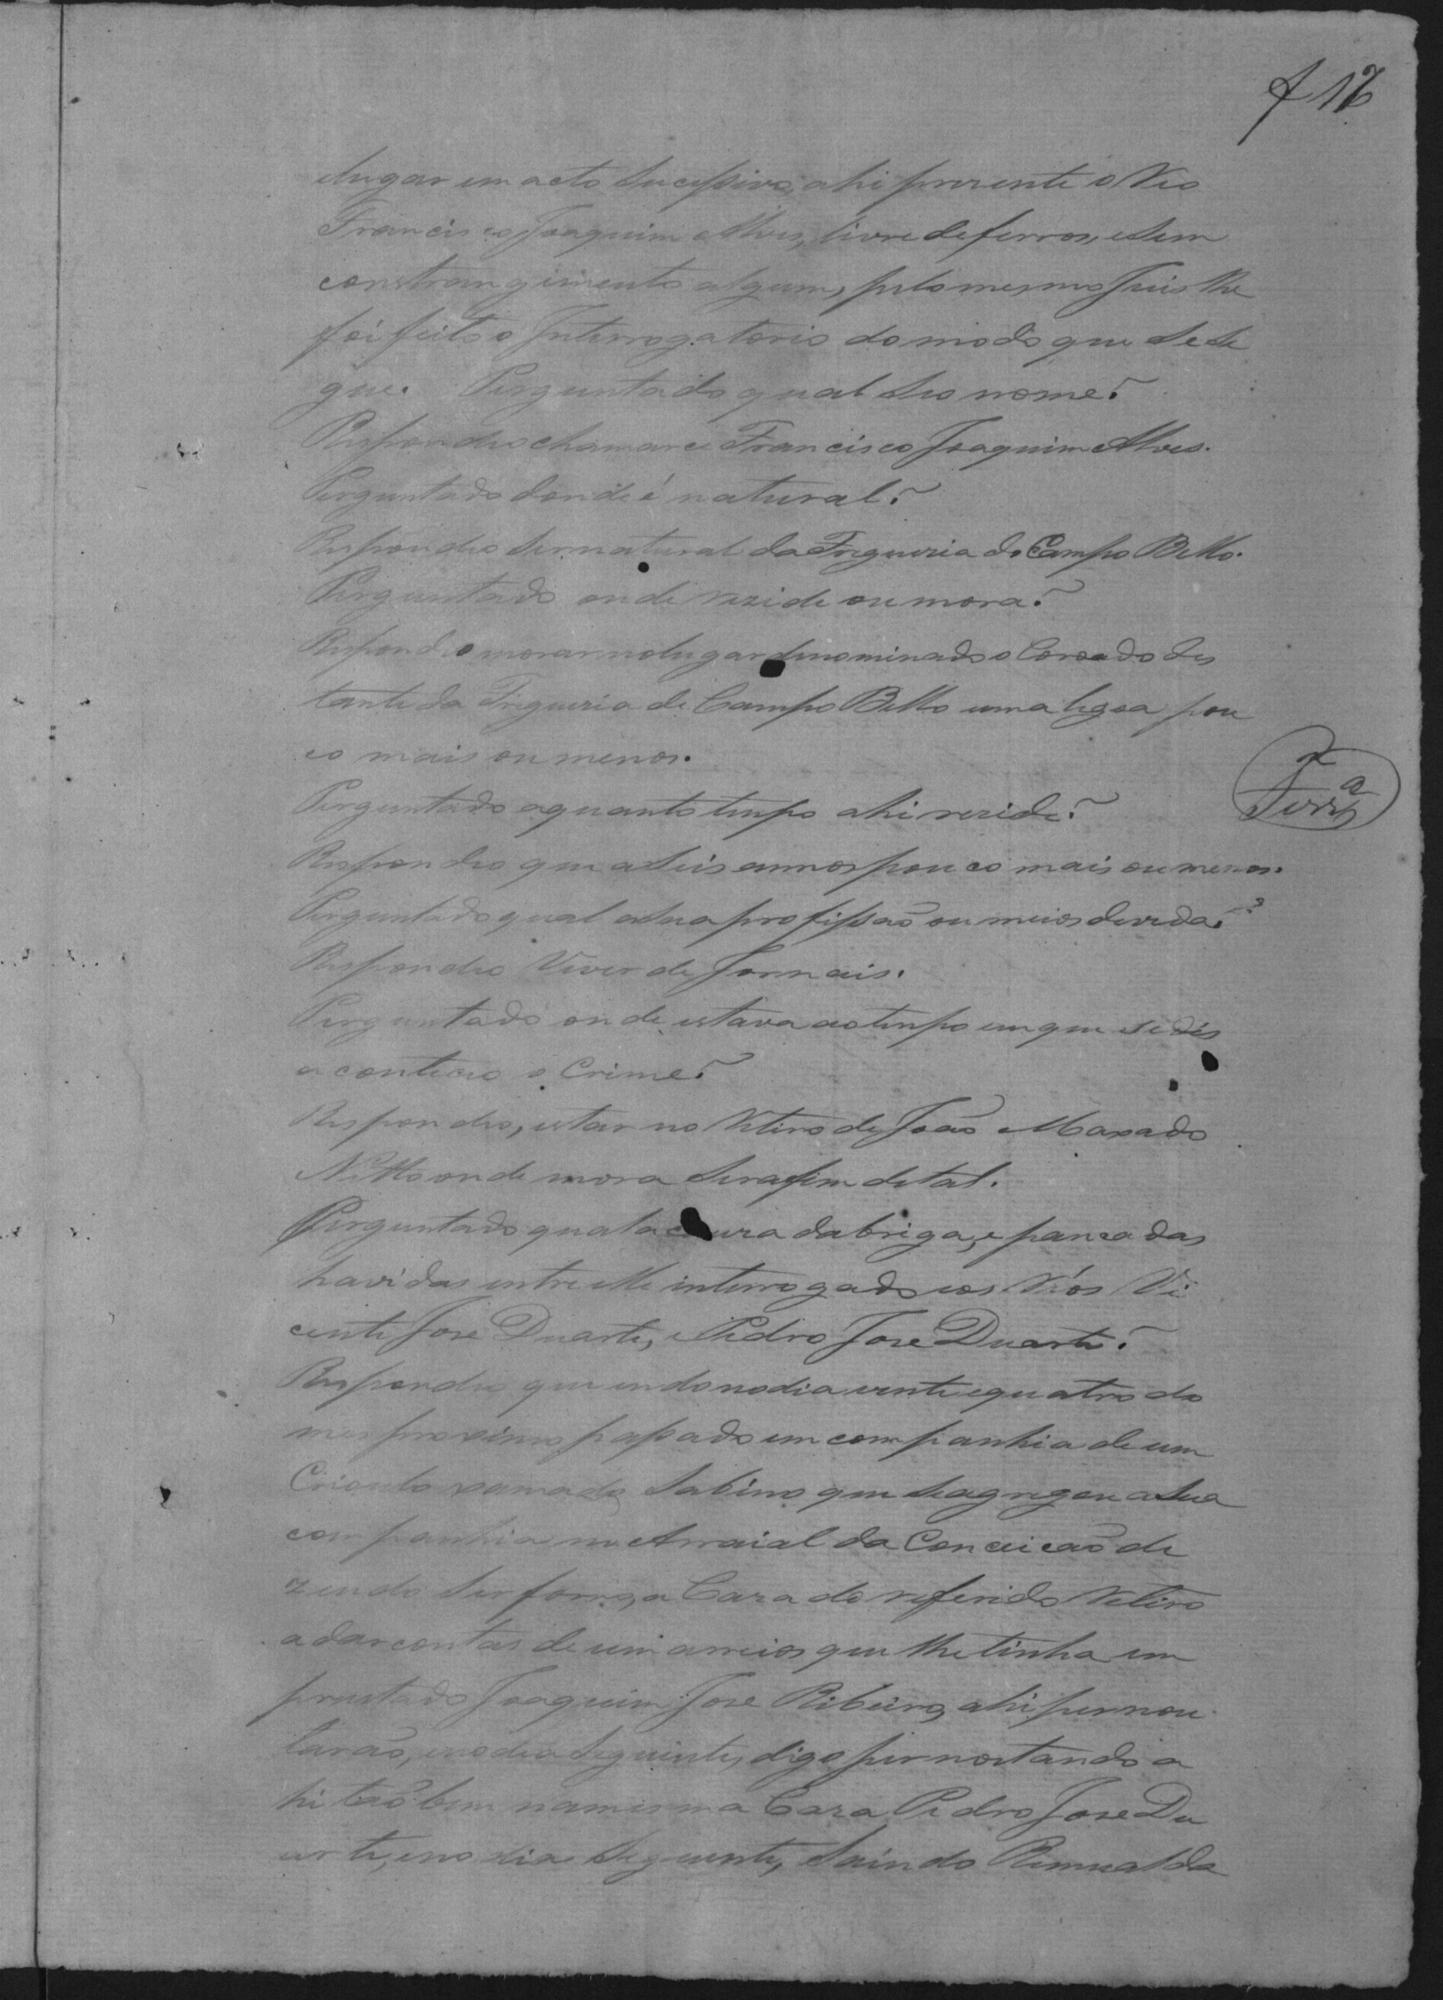 f 17
elugar em acto sucessivo, ahi prezente o Reo
Francisco Joaquim Alves, livre de ferros, e sem
constrangimento algum, pelo mesmo Juis lhe
foi feito o Interrogatorio do modo que se se
gue. Perguntado qual seo nome?
Respondeo chamarce Francisco Joaquim Alves.
Perguntado donde é natural?
Respondeo ser natural da Freguezia do Campo Bello.
Perguntado onde rezide ou mora?
Respondeo morar no lugar denominado o Coroado des
tante da Freguezia de Campo Bello uma legoa pou
co mais ou menos.
Perguntado a quanto tempo ahi rezide?
Respondeo que a seis annos pouco mais ou menos.
Perguntado qual a sua profissão ou meios de vida?
Respondeo Viver de Jornais.
Perguntado onde estava ao tempo em que se dis
aconteceo o Crime?
Respondeo, estar no Retiro de João Maxado
Netto onde mora Serafim de tal.
Perguntado qual a cauza da briga, e pancadas
havidas entre elle interrogado e os Réos Vi
cente Jose Duarte, e Pedro Jose Duarte?
Respondeo que indo no dia vente e quatro do
mes proximo passado em companhia de um
Crioulo xamado Sabino que se agregou a sua
companhia no Arraial da Conceicão de
zendo ser forro, a Caza do referido Retiro
a dar contas de um arreios que lhe tinha em
prestado Joaquim Jose Ribeiro, ahi pernou
tarão, e no dia seguinte, digo pernoitando a
hi tãobem na mesma Caza Pedro Jose Du
arte, e no dia seguente, saindo Rumualda
Ferrª